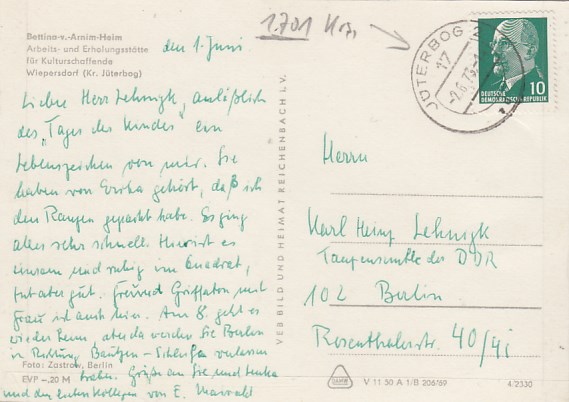 Bettina-v.-Arnim-Heim
Arbeits- und Erholungsstätte
für Kulturschaffende
Wiepersdorf (Kr. Jüterbog)
den 1. Juni
1.701
JÜTERBOG
17
DEUTSCHE
DEMOKRATISCHE REPUBLIK
10
Liebe Herr Lehnigk, anläßlich
des „Tages des Kindes" ein
Lebenszeichen von mir. Sie
haben von Erika gehört, daß ich
den Ranzen gepackt habe. Es ging
alles sehr schnell. Hier ist es
einsam und ruhig im Quadrat,
tut aber gut. Freund Griffaton mit
Frau ist auch hier. Am 8. geht es
wieder heim, aber da werden Sie Berlin
in Richtung Bautzen - Schleife verlassen
haben. Grüße an Sie und
und den Kollegen von E.
Foto: Zastrow, Berlin
EVP -.20 M
VEB BILD UND HEIMAT REICHENBACH I. V.
Herrn
Karl Heinz Lehnigk
der DDR
102 Berlin
Rosenthalerstr. 40/41
V 11 50 A 1/B 206/69
4/2330